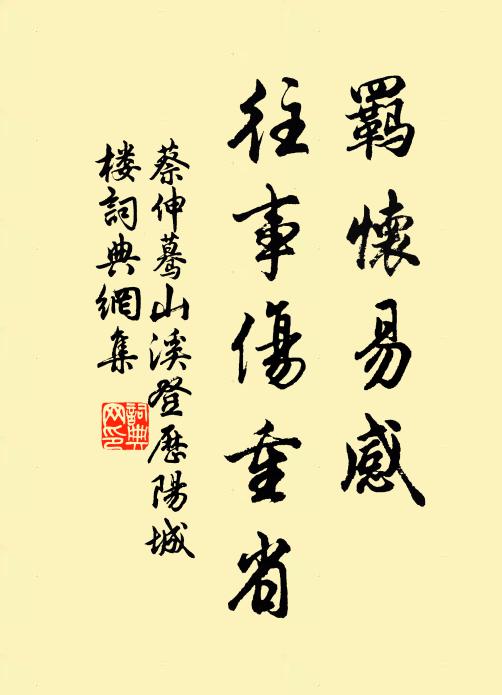 羈懷易感
往事傷重省
蔡伸驀山溪登歷陽城
楼詞典網集
詞典
网印